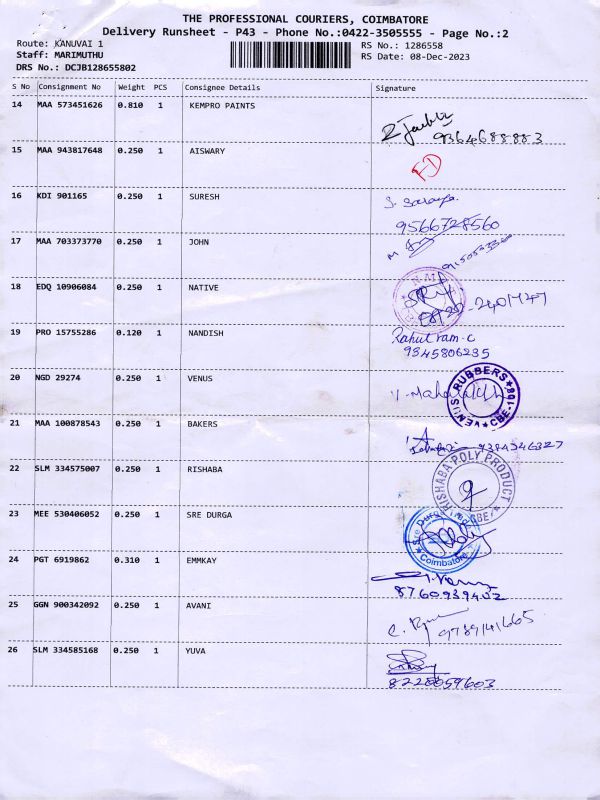 THE PROFESSIONAL COURIERS, COIMBATORE
Delivery Runsheet - P43 - Phone No.:0422-3505555 - Page No.:2
Route: KANUVAI 1
RS No.: 1286558
Staff: MARIMUTHU
RS Date: 08-Dec-2023
DRS No.: DCJB128655802
S No Consignment No Weight PCS Consignee Details Signature
14 MAA 573451626 0.810 1 KEMPRO PAINTS
9364688883
15 MAA 943817648 0.250 1 AISWARY
16 KDI 901165 0.250 1 SURESH
S. Saranya.
9566728560
17 MAA 703373770 0.250 1 JOHN
18 EDQ 10906084 0.250 1 NATIVE
19 PRO 15755286 0.120 1 NANDISH
Rahul ram.c
9345806235
20 NGD 29274 0.250 1 VENUS
VENUS RUBBERS CBE
21 MAA 100878543 0.250 1 BAKERS
22 SLM 334575007 0.250 1 RISHABA
RISHABA POLY PRODUCT CBE
23 MEE 530406052 0.250 1 SRE DURGA
Sre Durga Coimbatore
24 PGT 6919862 0.310 1 EMMKAY
8760939402
25 GGN 900342092 0.250 1 AVANI
9789141665
26 SLM 334585168 0.250 1 YUVA
8228059603